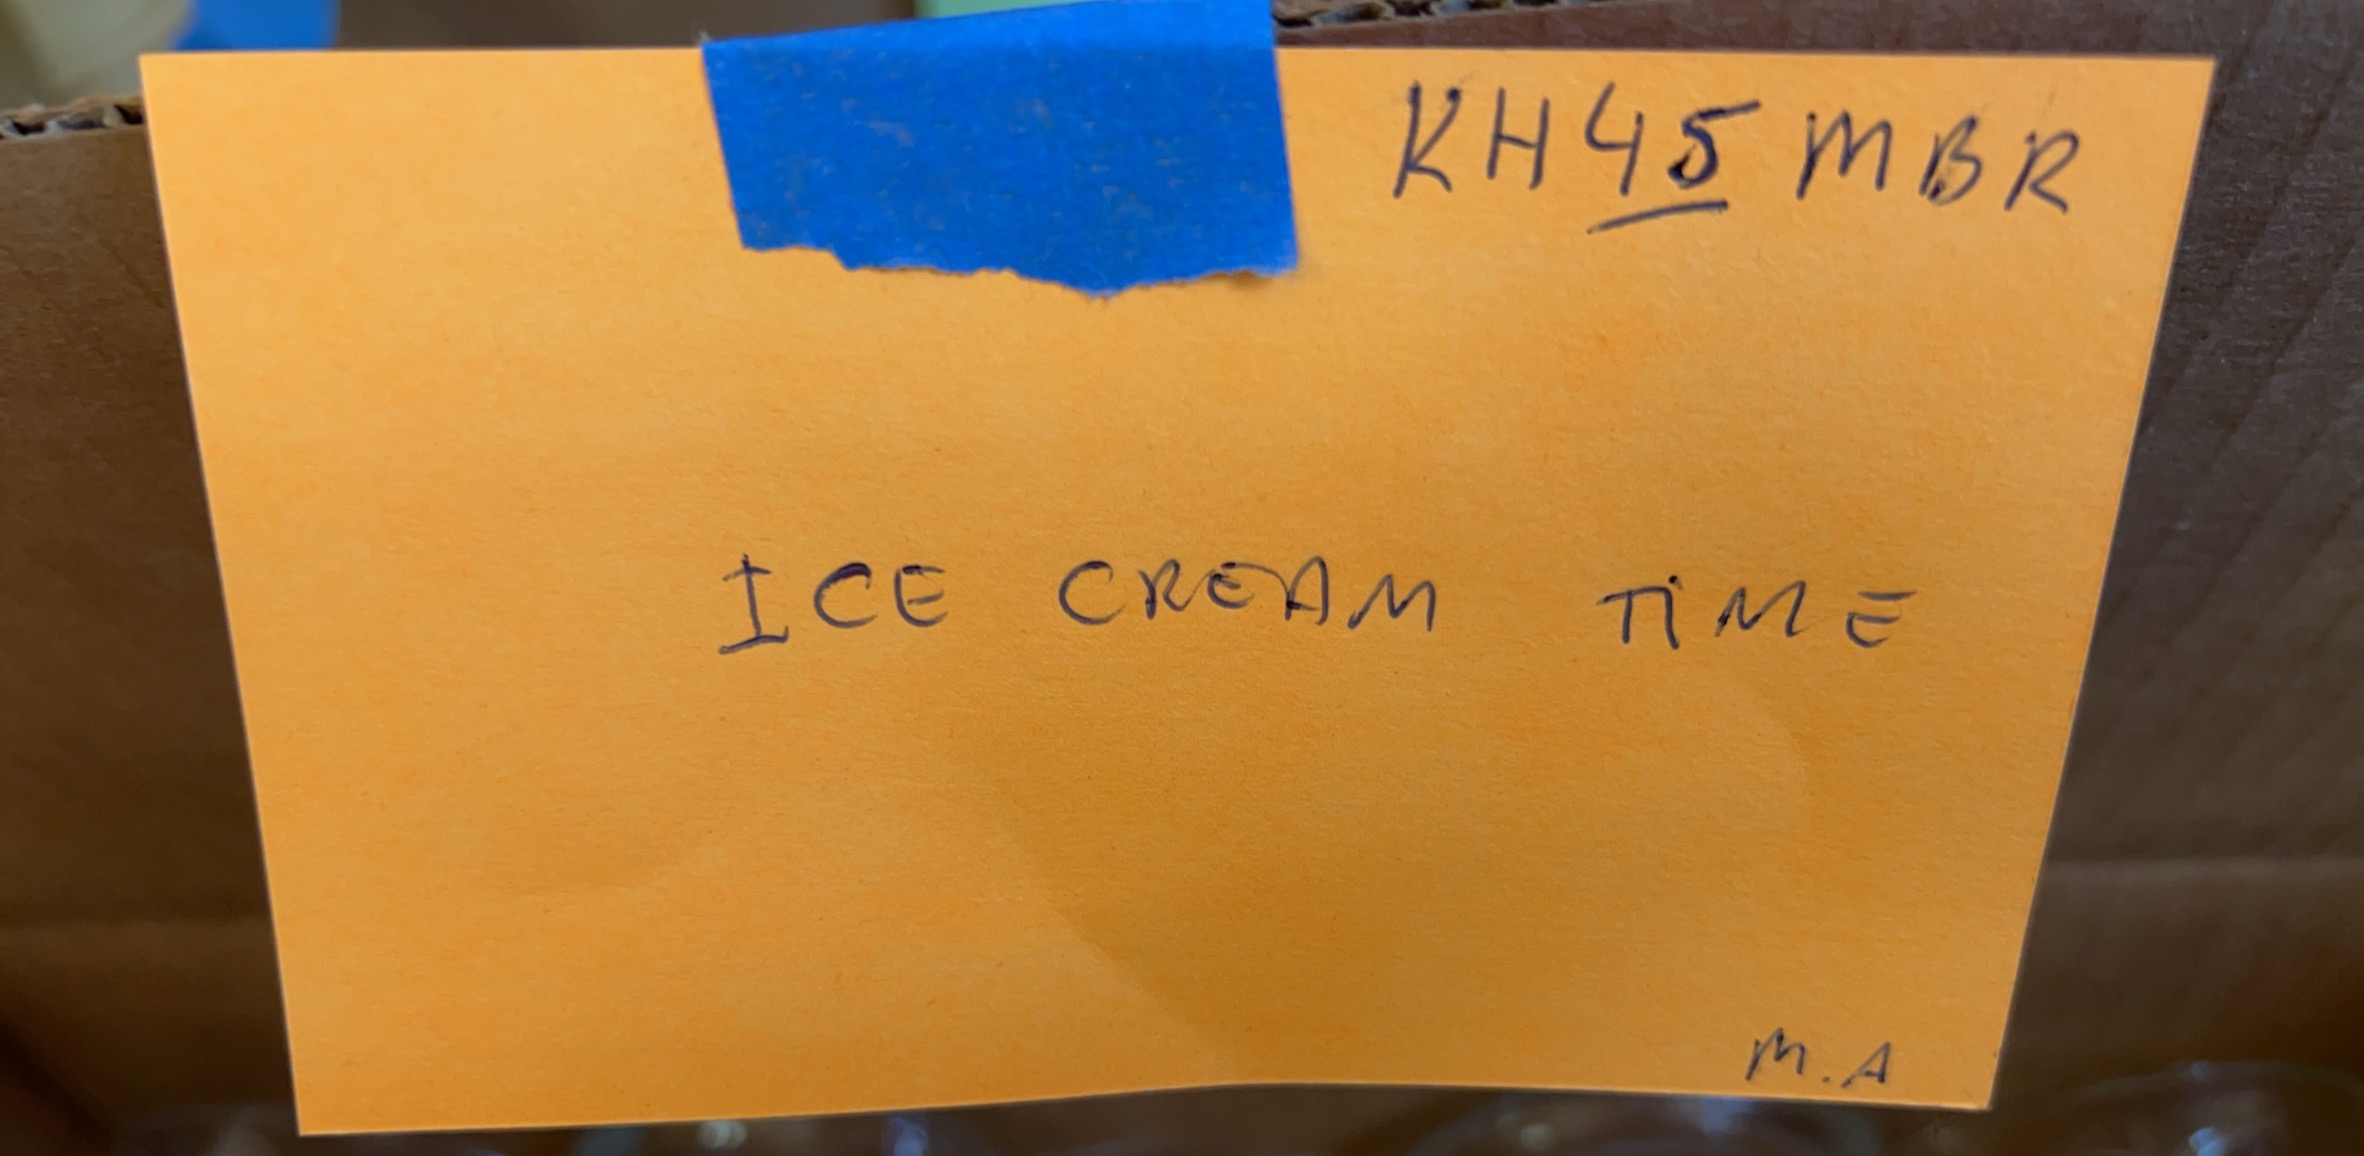 KH45 MBR
ICE CREAM TiME
M.A